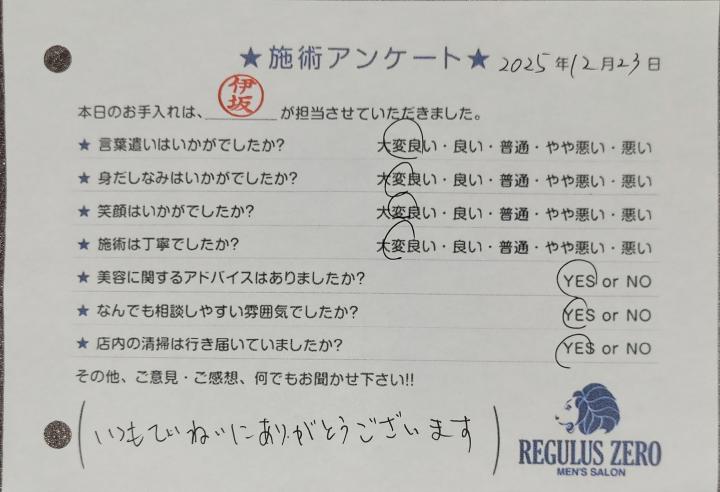 ★施術アンケート★ 2025年12月23日
本日のお手入れは、伊坂が担当させていただきました。
★ 言葉遣いはいかがでしたか? 大変良い・良い・普通・やや悪い・悪い
★ 身だしなみはいかがでしたか? 大変良い・良い・普通・やや悪い・悪い
★ 笑顔はいかがでしたか? 大変良い・良い・普通・やや悪い・悪い
★ 施術は丁寧でしたか? 大変良い・良い・普通・やや悪い・悪い
★ 美容に関するアドバイスはありましたか? YES or NO
★ なんでも相談しやすい雰囲気でしたか? YES or NO
★ 店内の清掃は行き届いていましたか? YES or NO
その他、ご意見・ご感想、何でもお聞かせ下さい!!
(いつもていねいにありがとうございます)
REGULUS ZERO
MEN'S SALON